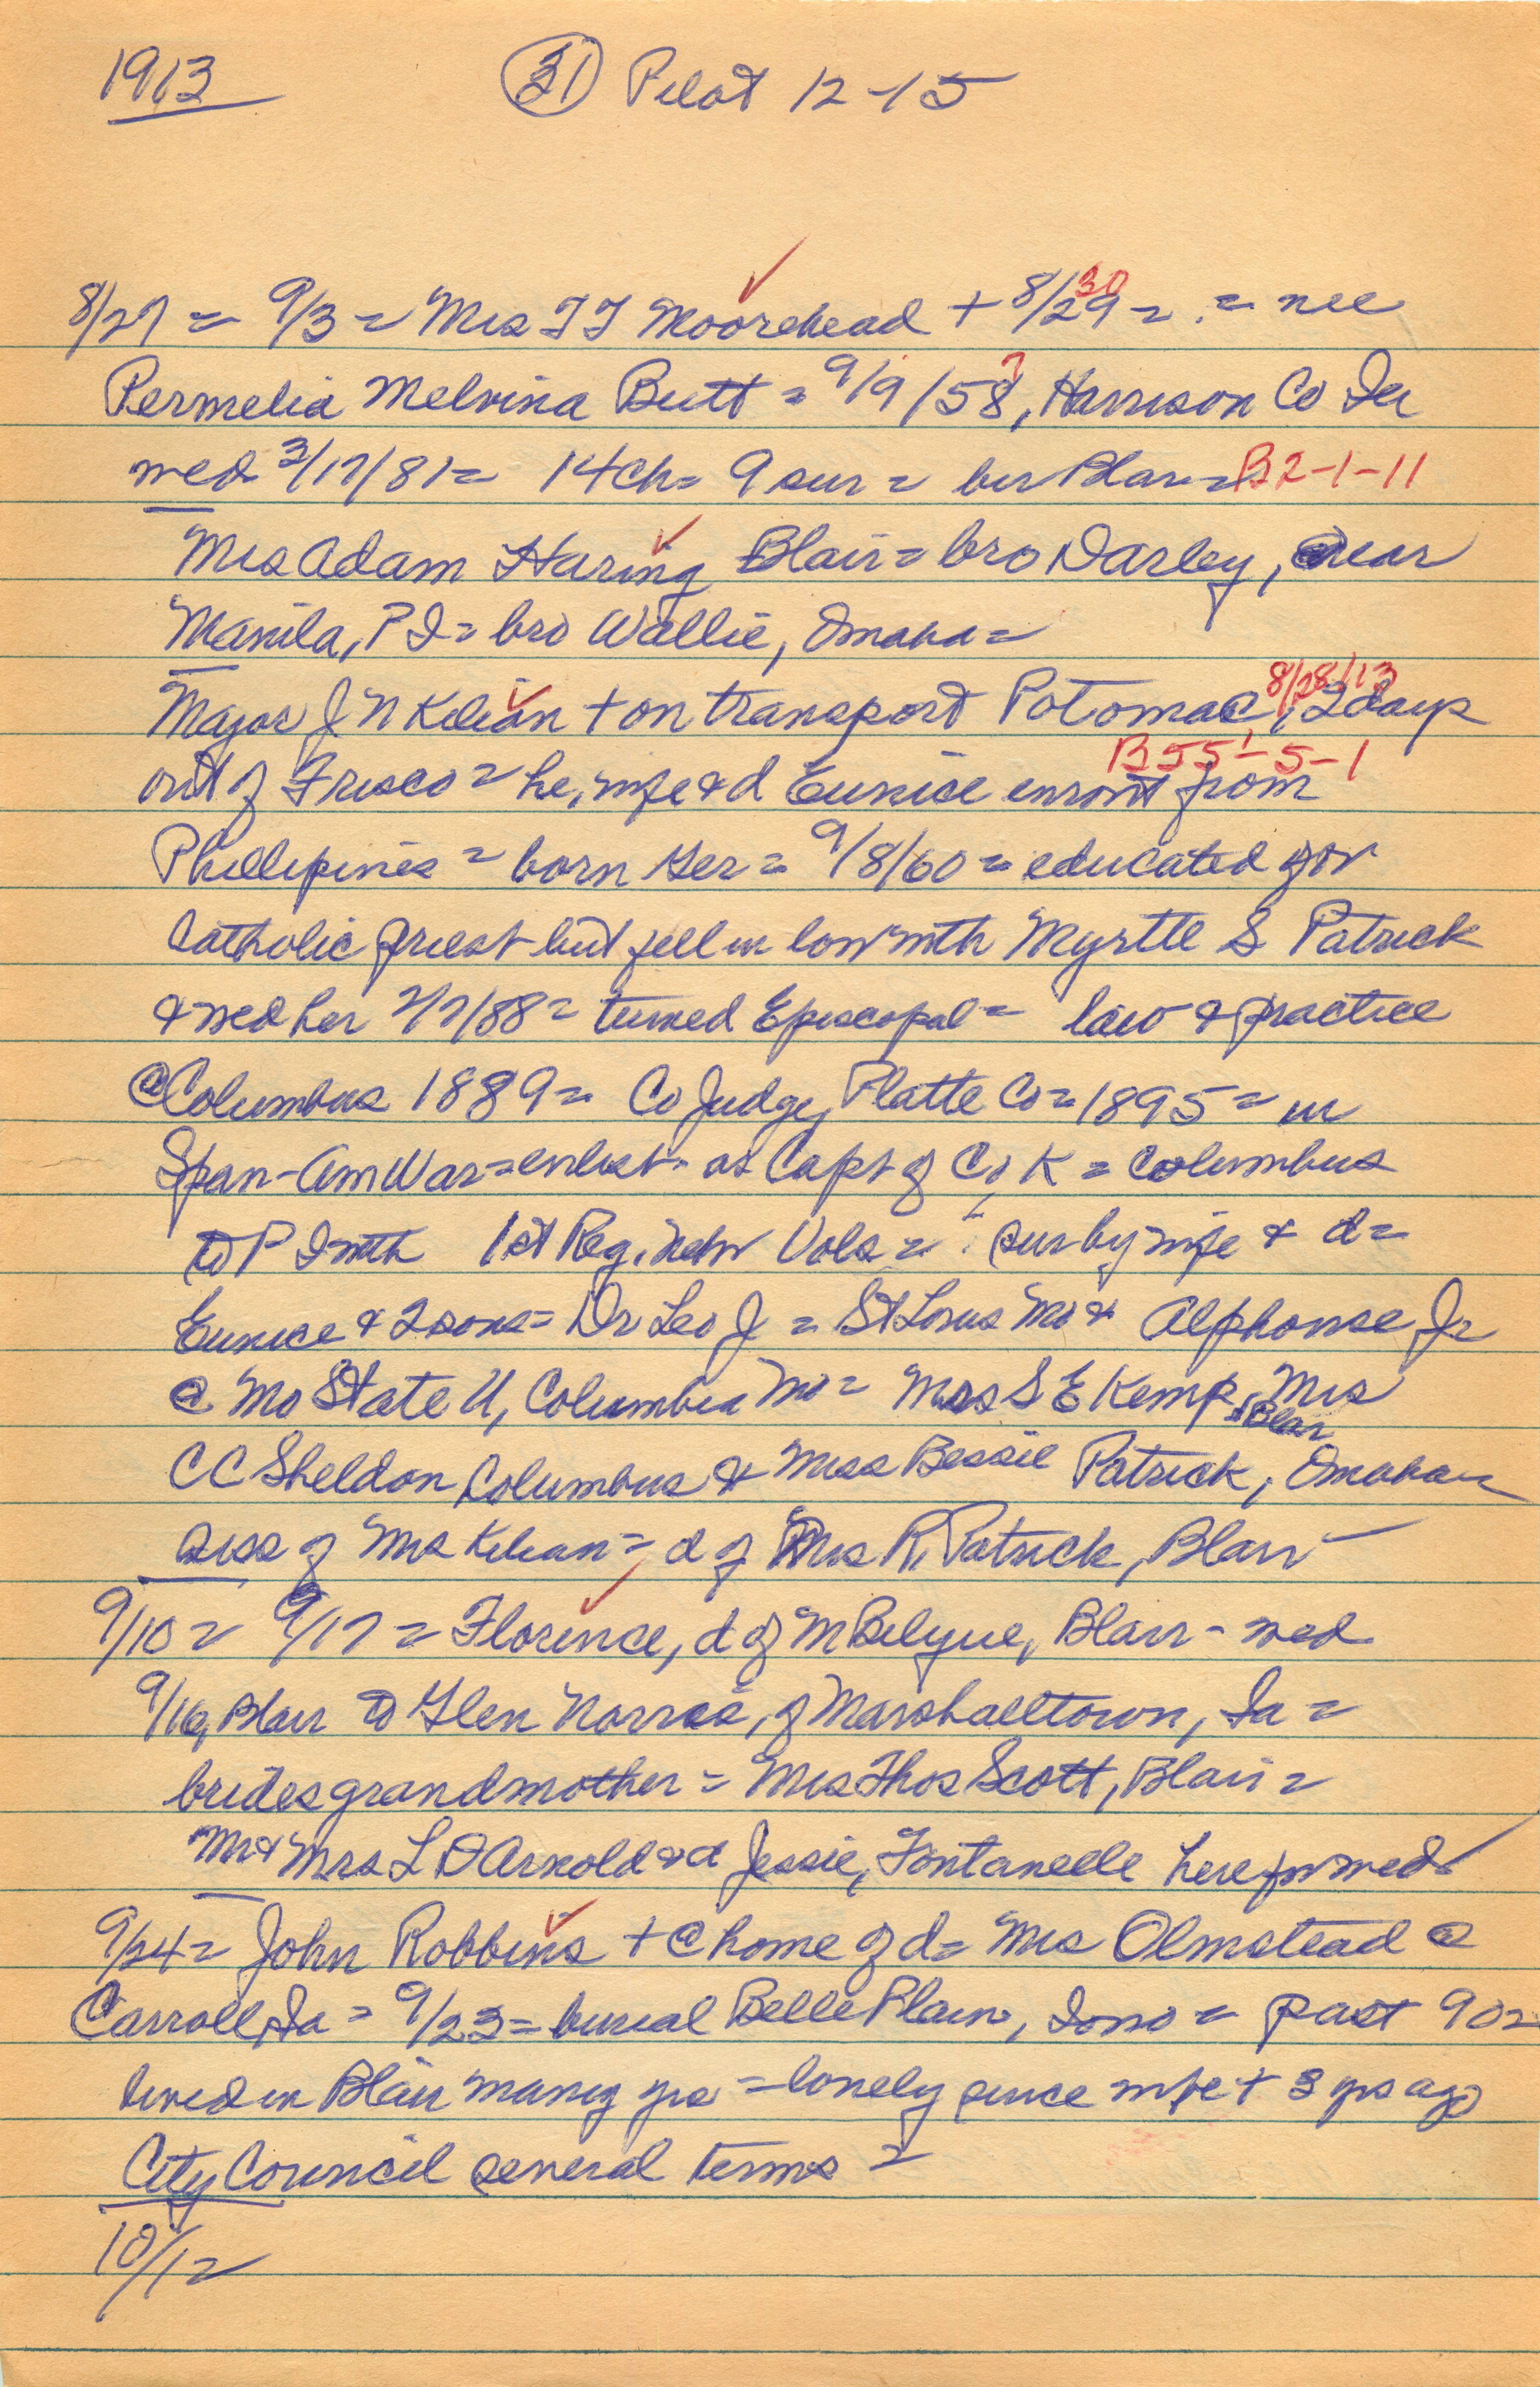 1913 (31) Pilot 12-15
8/27 = 9/3 = Mrs T J Moorehead + 8/29 30 = . = nee
Permelia Melvina Butt = 9/9/58 ?, Harrison Co Ia
wed 3/17/81 = 14 ch = 9 sur = bur Blair = B2-1-11
Mrs Adam Haring Blair = bro Darley, near
Manila, P I = bro Wallie, Omaha =
Major J N Kilian + on transport Potomac, 8/28/13 2 days
out of Frisco = he, wife & d Eunice enrout from B55-5-1
Phillipines = born Ger = 9/8/60 = educated for
Catholic Priest but fell in lov with Myrtle S Patrick
& wed her 2/7/88 = turned Episcopal = law & practice
@ Columbus 1889 = Co Judge, Platte Co = 1895 = in
Span-Am War = enlist as Capt of Co K = Columbus
to P I with 1st Reg. Nebr Vols = sur by wife & d =
Eunice & 2 sons = Dr Leo J = St Louis Mo & Alphonse Jr
@ Mo State U, Columbia Mo = Mrs S E Kemp, Blair Mrs
C C Sheldon Columbus & Miss Bessie Patrick, Omaha =
siss of Mrs Kilian = d of Mrs R Patrick, Blair
9/10 = 9/17 = Florence, d of M Belyue, Blair - wed
9/16, Blair to Glen Norris, of Marshalltown, Ia =
brides grandmother = Mrs Thos Scott, Blair =
Mr & Mrs L D Arnold & d Jessie, Fontanelle here for wed
9/24 = John Robbins + @ home of d = Mrs Olmstead @
Carroll, Ia = 9/23 = burial Belle Plain, Iowa = past 90 =
lived in Blair many yrs = lonely since wife + 3 yrs ago
City Council several terms =
10/1 =